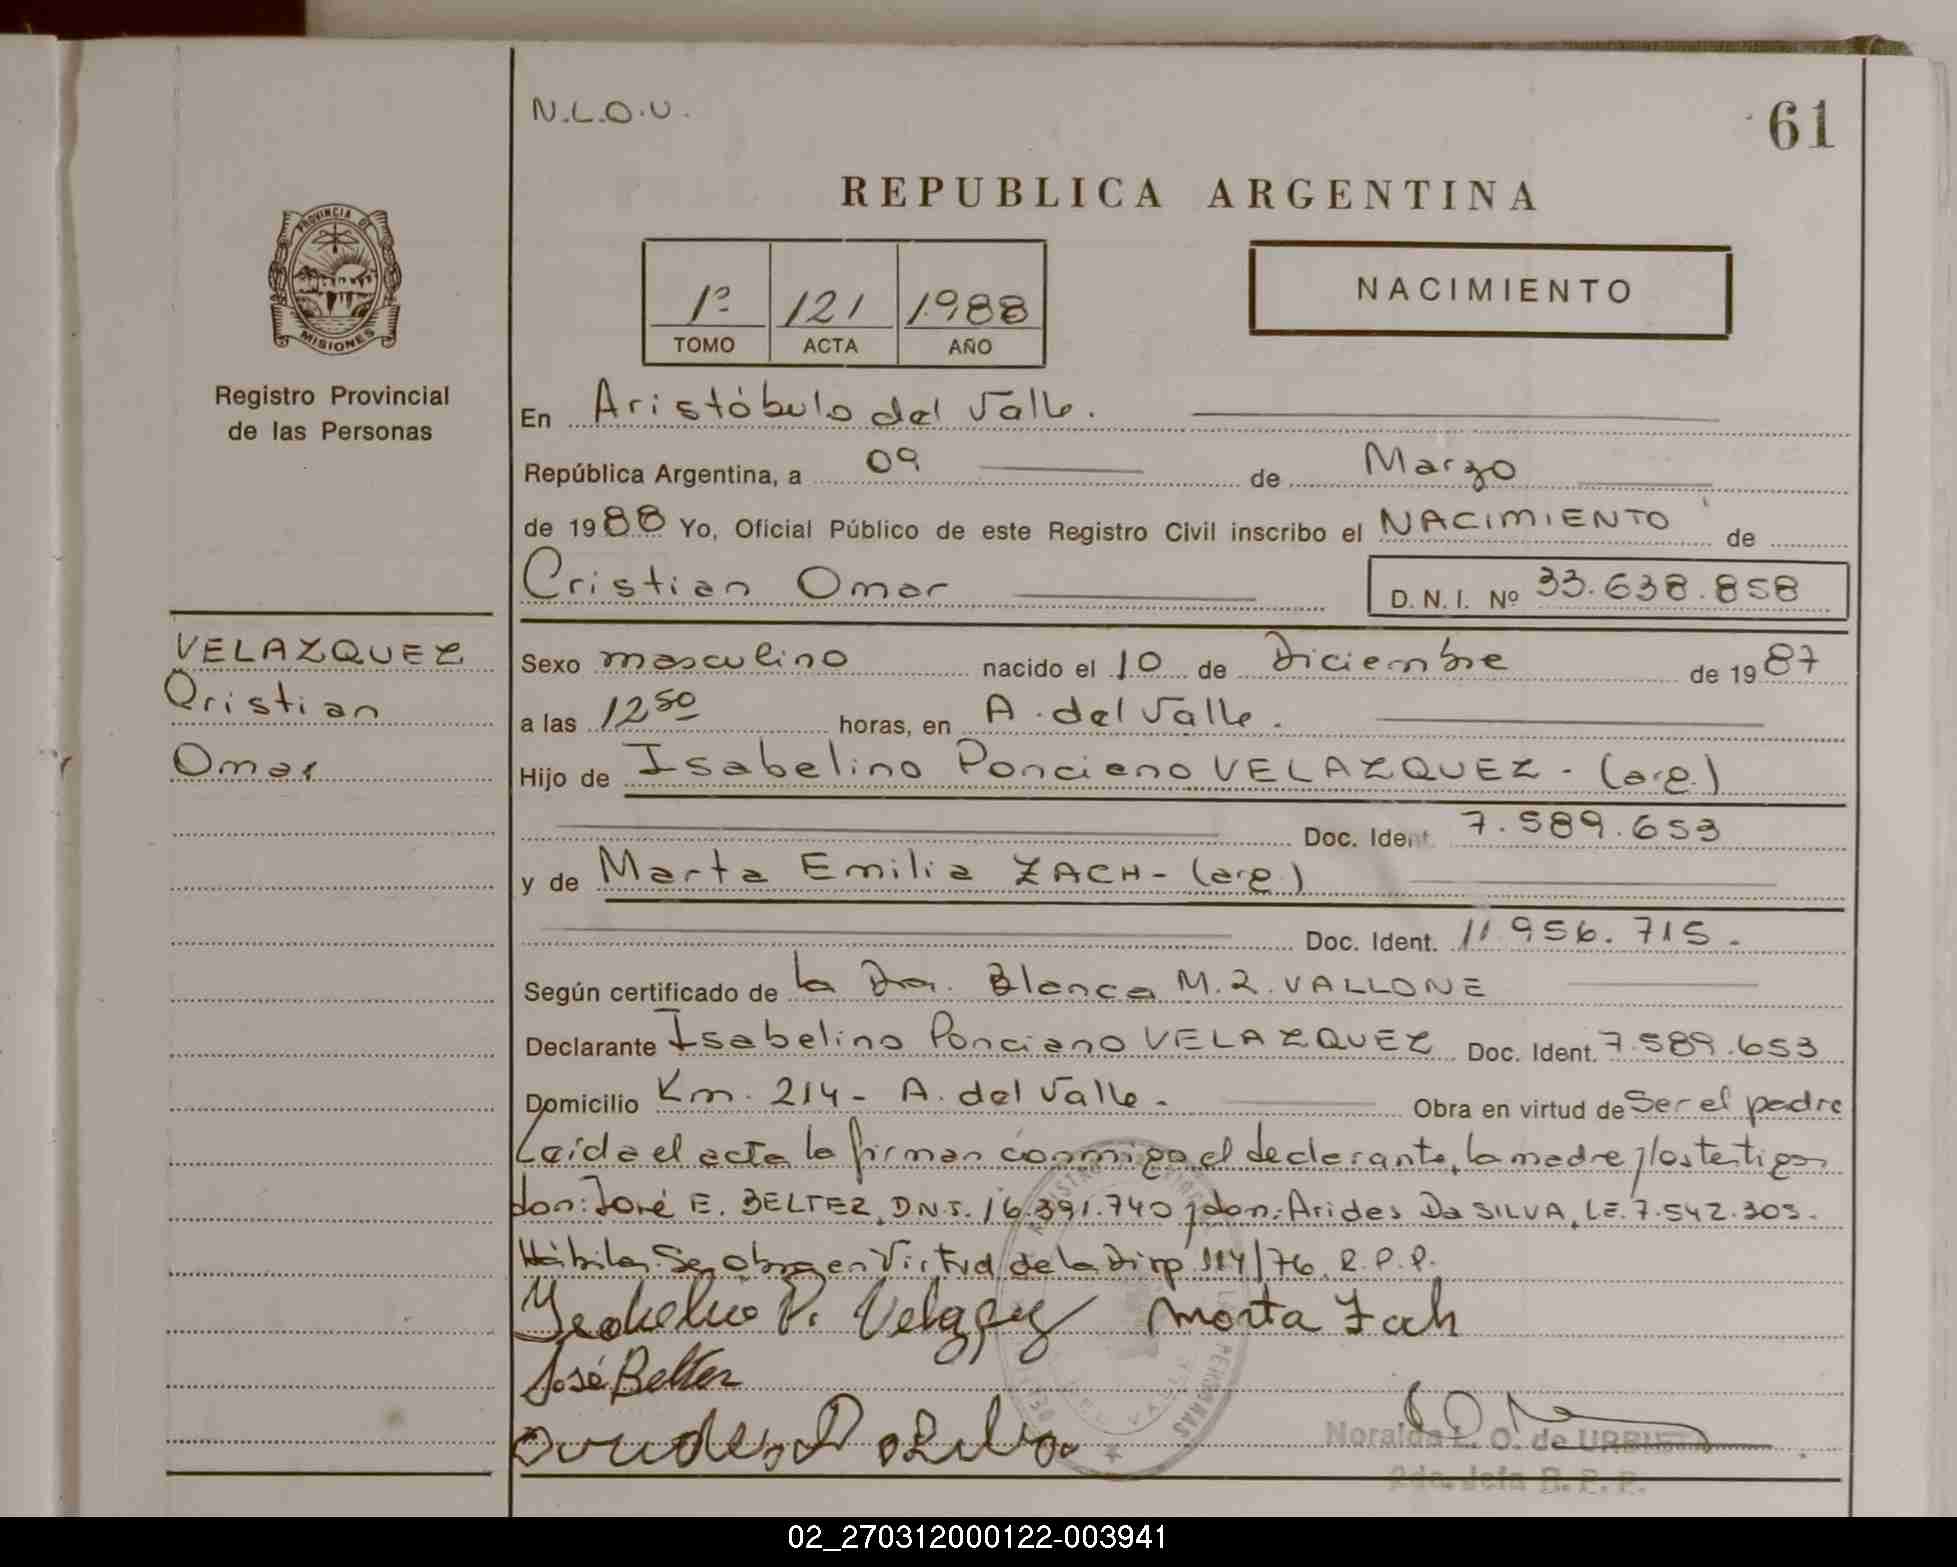 N.L.O.U.
61
REPUBLICA ARGENTINA
PROVINCIA DE
MISIONES
Registro Provincial
de las Personas
1º 121 1988
TOMO ACTA AÑO
NACIMIENTO
En Aristóbulo del Valle.
República Argentina, a 09 de Marzo
de 1988 Yo, Oficial Público de este Registro Civil inscribo el NACIMIENTO de
Cristian Omar D.N.I. Nº 33.638.858
VELAZQUEZ
Cristian
Omar
Sexo masculino nacido el 10 de Diciembre de 1987
a las 12 50 horas, en A. del Valle.
Hijo de Isabelino Ponciano VELAZQUEZ - (arg.)
Doc. Ident. 7.589.653
y de Marta Emilia ZACH - (arg.)
Doc. Ident. 11.956.715.
Según certificado de la Dra. Blanca M. R. VALLONE
Declarante Isabelino Ponciano VELAZQUEZ Doc. Ident. 7.589.653
Domicilio Km. 214 - A. del Valle. Obra en virtud de Ser el padre
Leída el acta la firman conmigo el declarante, la madre y los testigos
don: José E. BELTER, D.N.I. 16.391.740 y don: Arides Da SILVA, L.E. 7.542.303.
Hábiles. Se obra en Virtud de la Disp 114/76 R.P.P.
Isabelino P. Velazquez Marta Zach
José Belter
Arides Da Silva
Noralda L. O. de
2da. Jefa R. P. P.
02_270312000122-003941